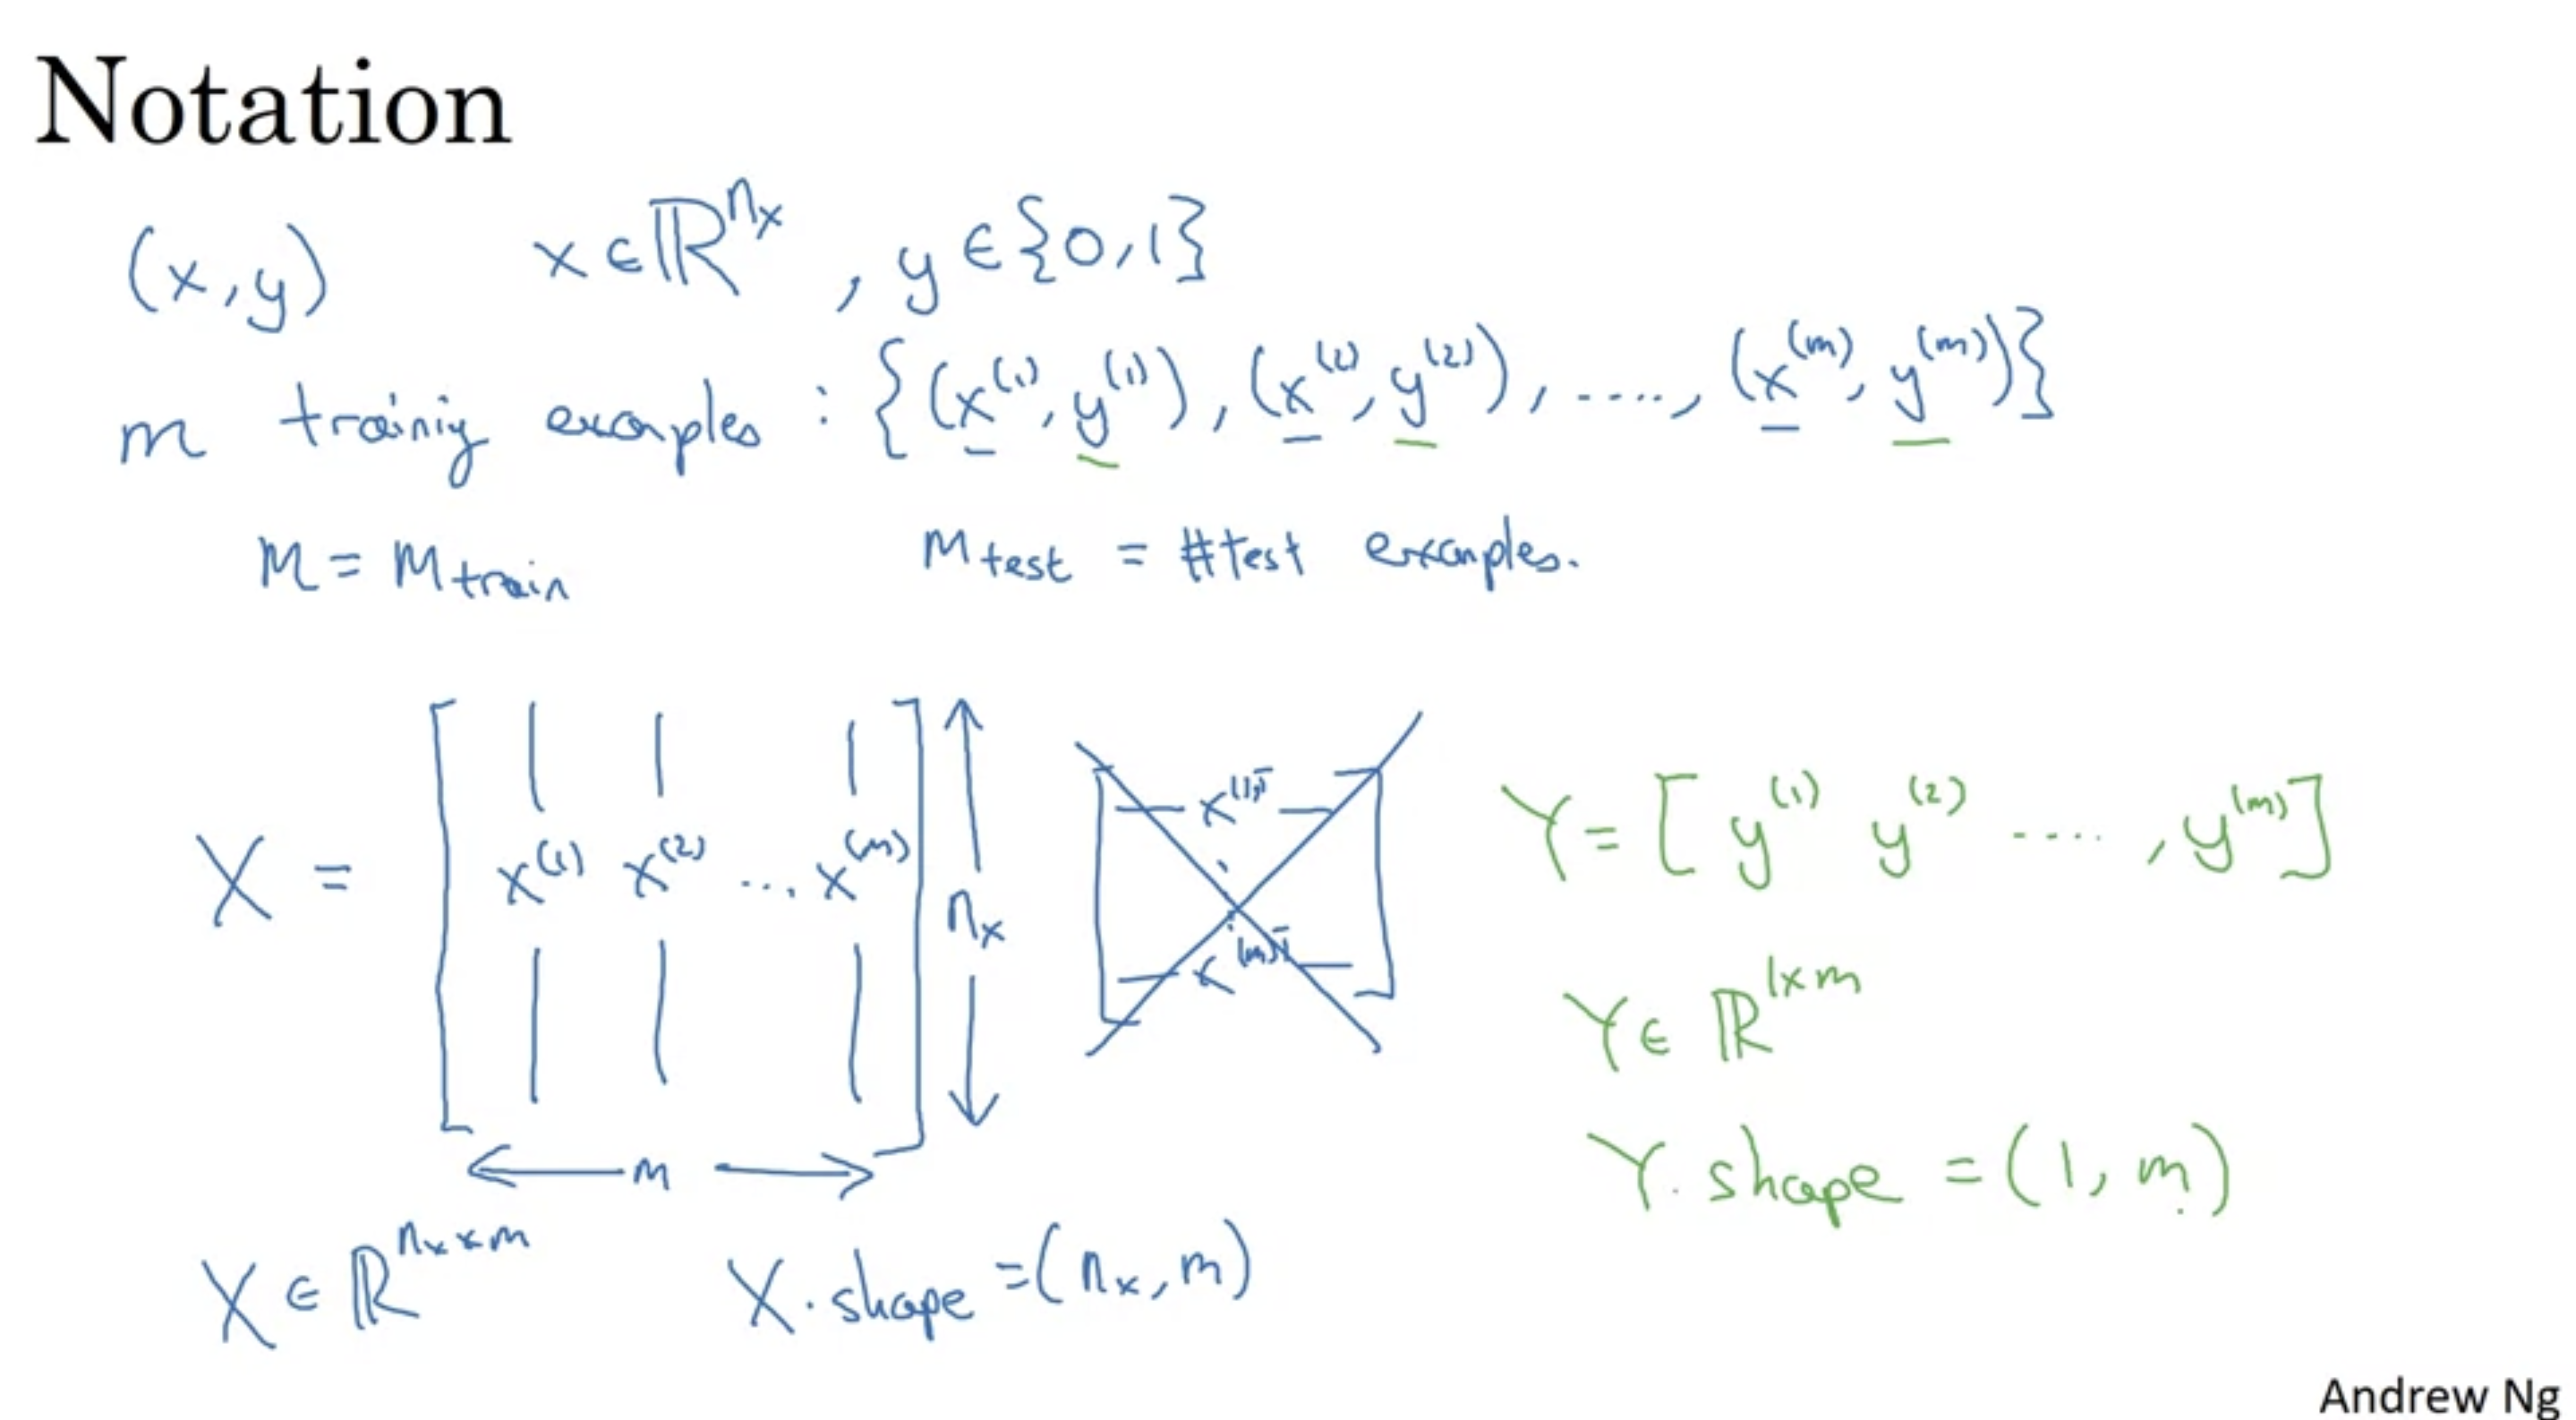 Notation
(x,y) x ∈ ℝ^{n_x}, y ∈ {0,1}
m training examples : {(x^{(1)}, y^{(1)}), (x^{(2)}, y^{(2)}), ...., (x^{(m)}, y^{(m)})}
M = M_{train} M_{test} = #test examples.
X = [ x^{(1)} x^{(2)} ... x^{(m)} ] n_x
m
x^{(1)T}
⋮
x^{(m)T}
Y = [ y^{(1)} y^{(2)} .... , y^{(m)} ]
Y ∈ ℝ^{1×m}
Y.shape = (1, m)
X ∈ ℝ^{n_x×m} X.shape = (n_x, m)
Andrew Ng